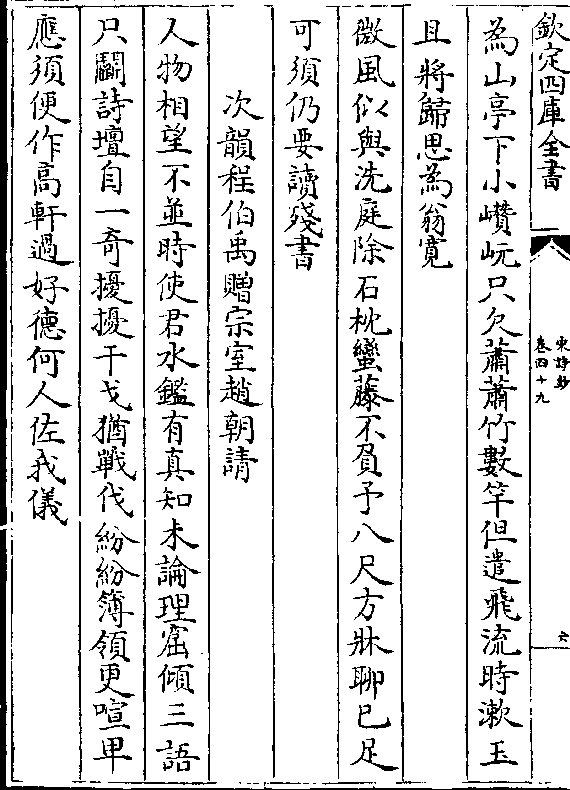 欽定四庫全書
宋詩鈔
卷四十九
六
為山亭下小巑岏只欠蕭蕭竹數竿但遣飛流時漱玉
且將歸思為翁寛
微風似與洗庭除石枕蠻藤不負予八尺方牀聊已足
可須仍要讀殘書
次韻程伯禹贈宗室趙朝請
人物相望不並時使君水鑑有真知未論理窟傾三語
只鬭詩壇自一奇擾擾干戈猶戰伐紛紛簿領更喧卑
應須便作高軒過好德何人佐我儀